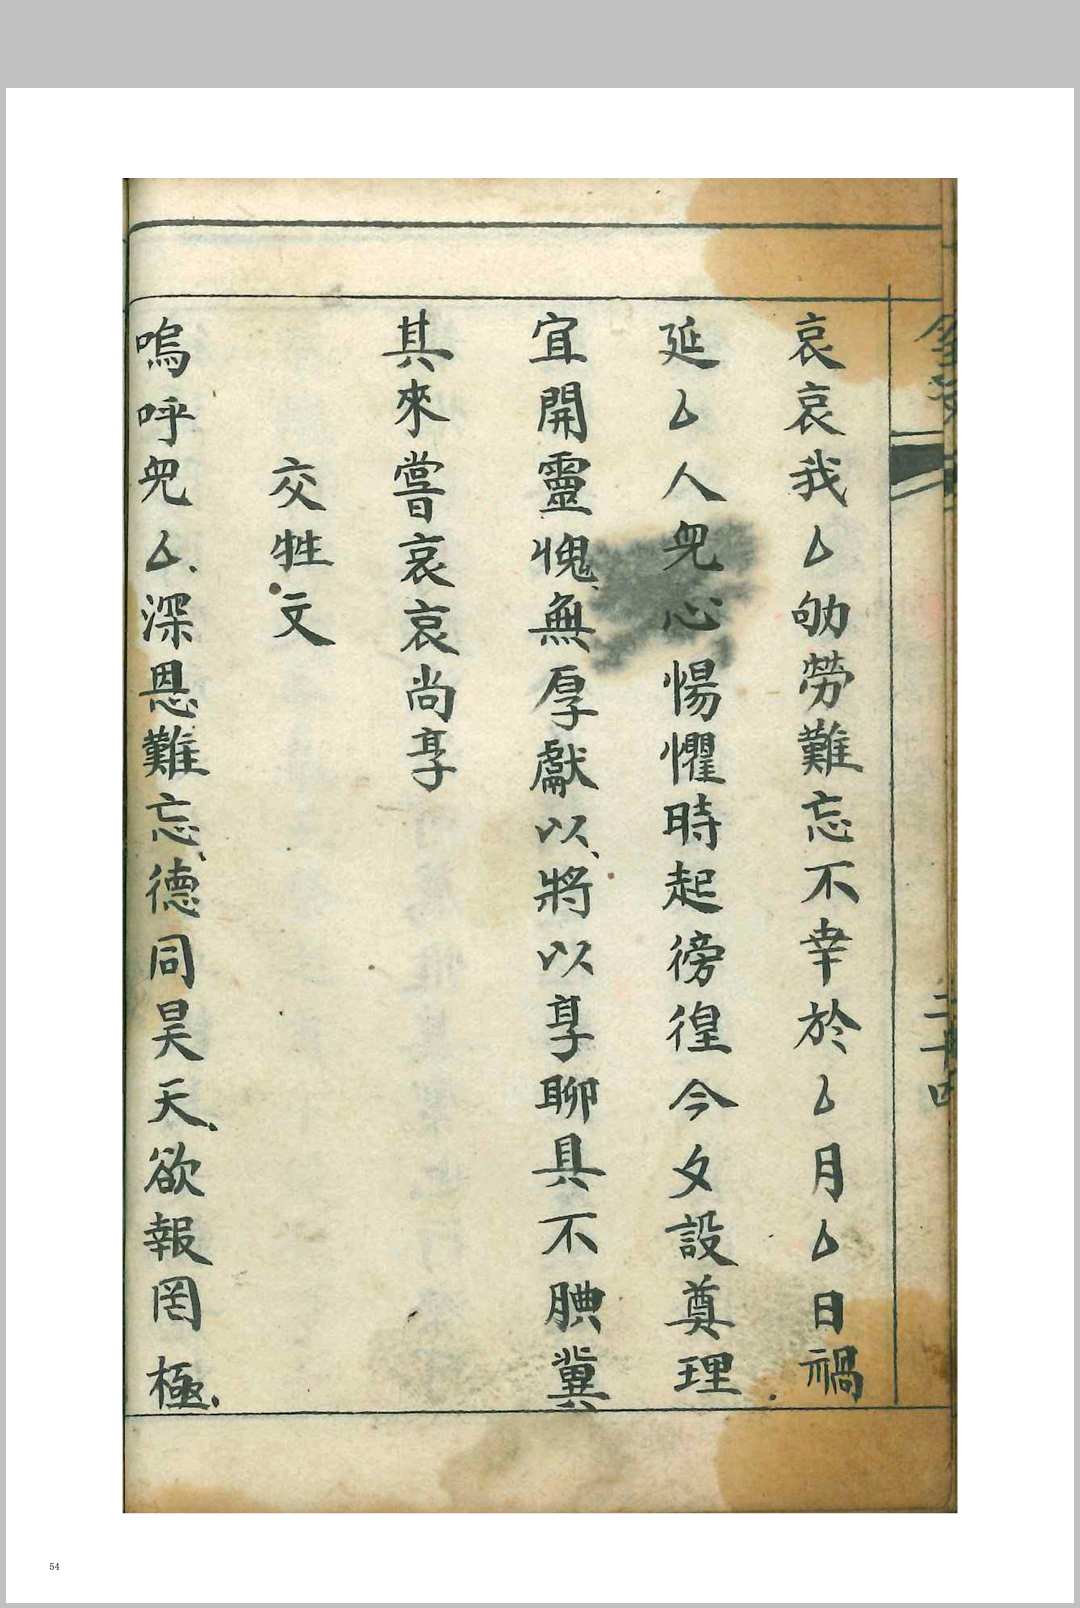 哀哀我厶劬勞難忘不幸於厶月厶日禍
延厶人兕心惕懼時起徬徨今夕設奠理
宜開靈愧無厚獻以將以享聊具不腆冀
其來嘗哀哀尚享
交牲文
嗚呼兕厶深恩難忘德同昊天欲報罔極
二十四
54